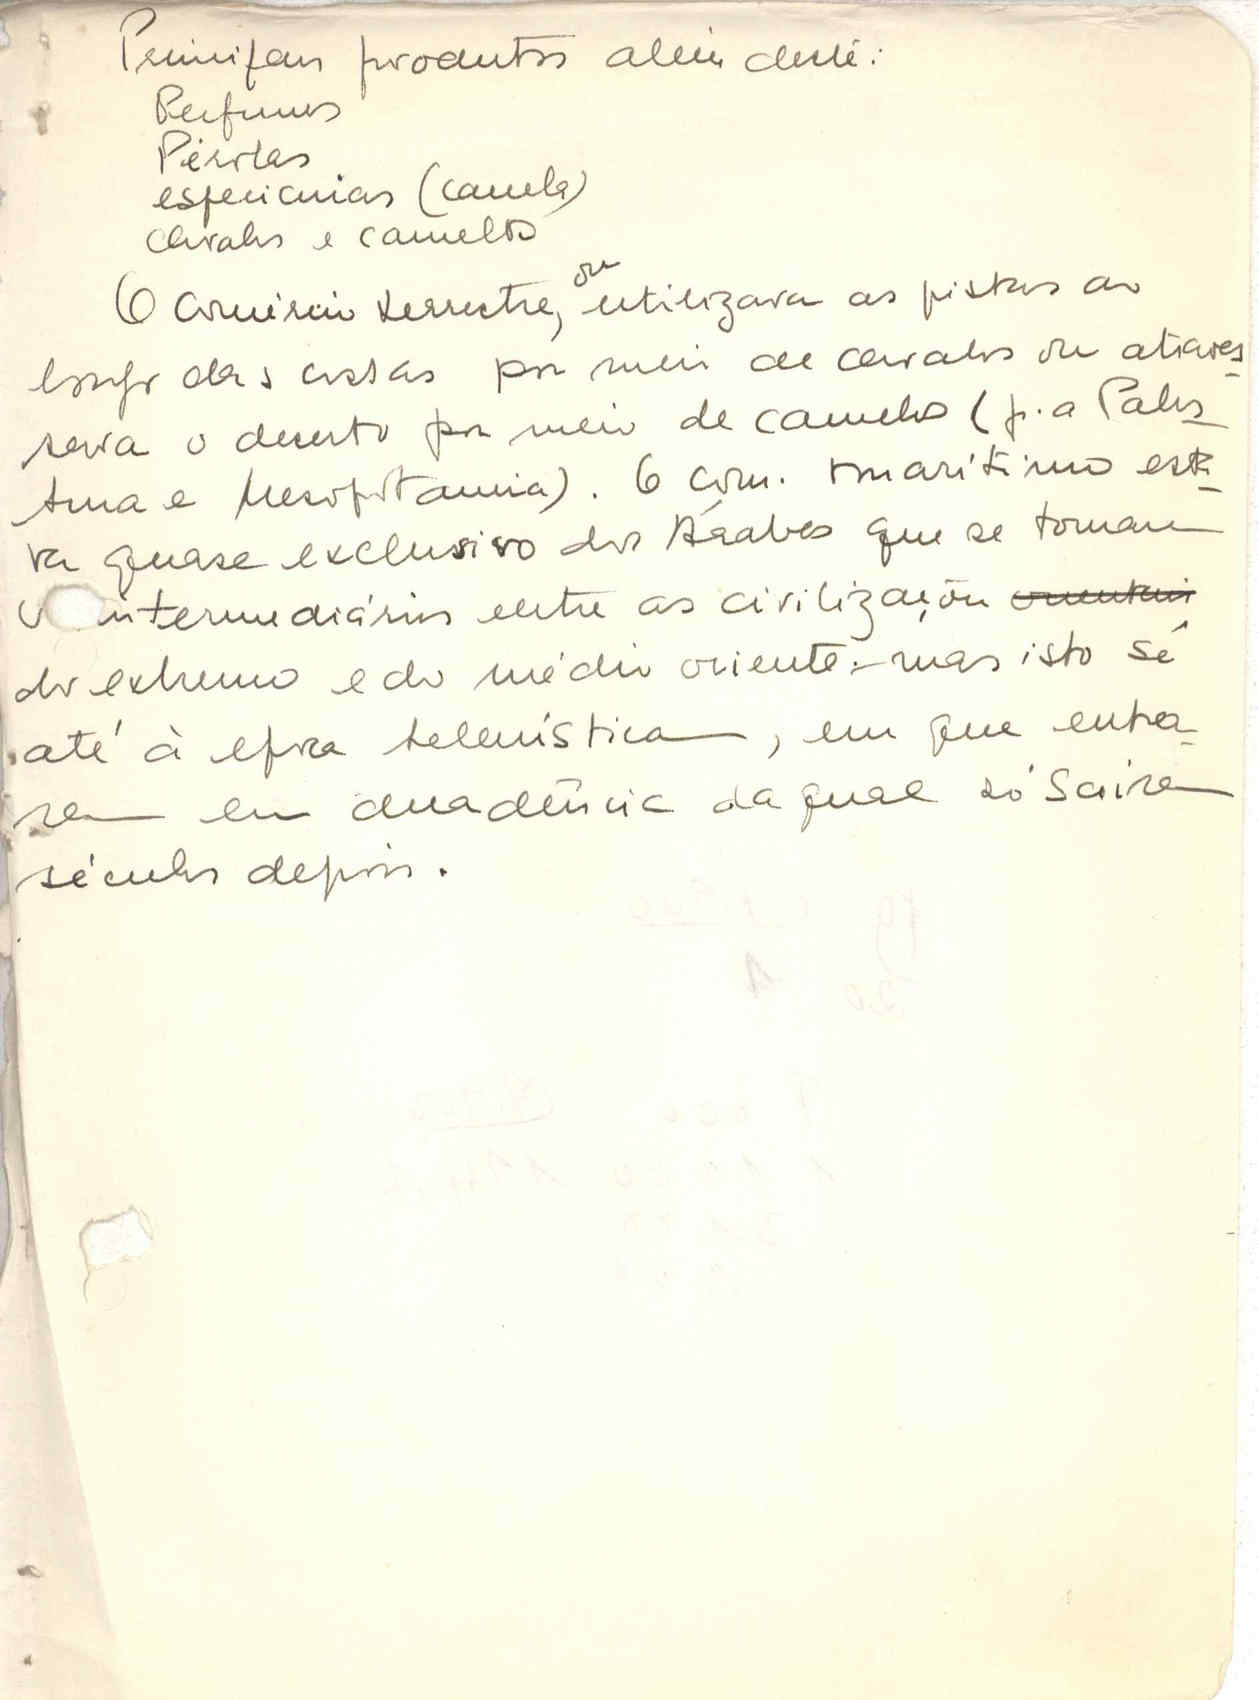 Principais produtos além deste:
Perfumes
Pérolas
especiarias (canela)
cavalos e camelos
O comércio terrestre, ou utilizava as pistas ao
longo das costas por meio de cavalos ou atraves-
sava o deserto por meio de camelos (p. a Pales-
tina e Mesopotamia). O com. maritimo esta-
va quase exclusivo dos Árabes que se tornam
intermediários entre as civilizações orientais
do extremo e do médio oriente - mas isto só
até à época helenística, em que entra-
ram em decadência da qual só sairam
séculos depois.